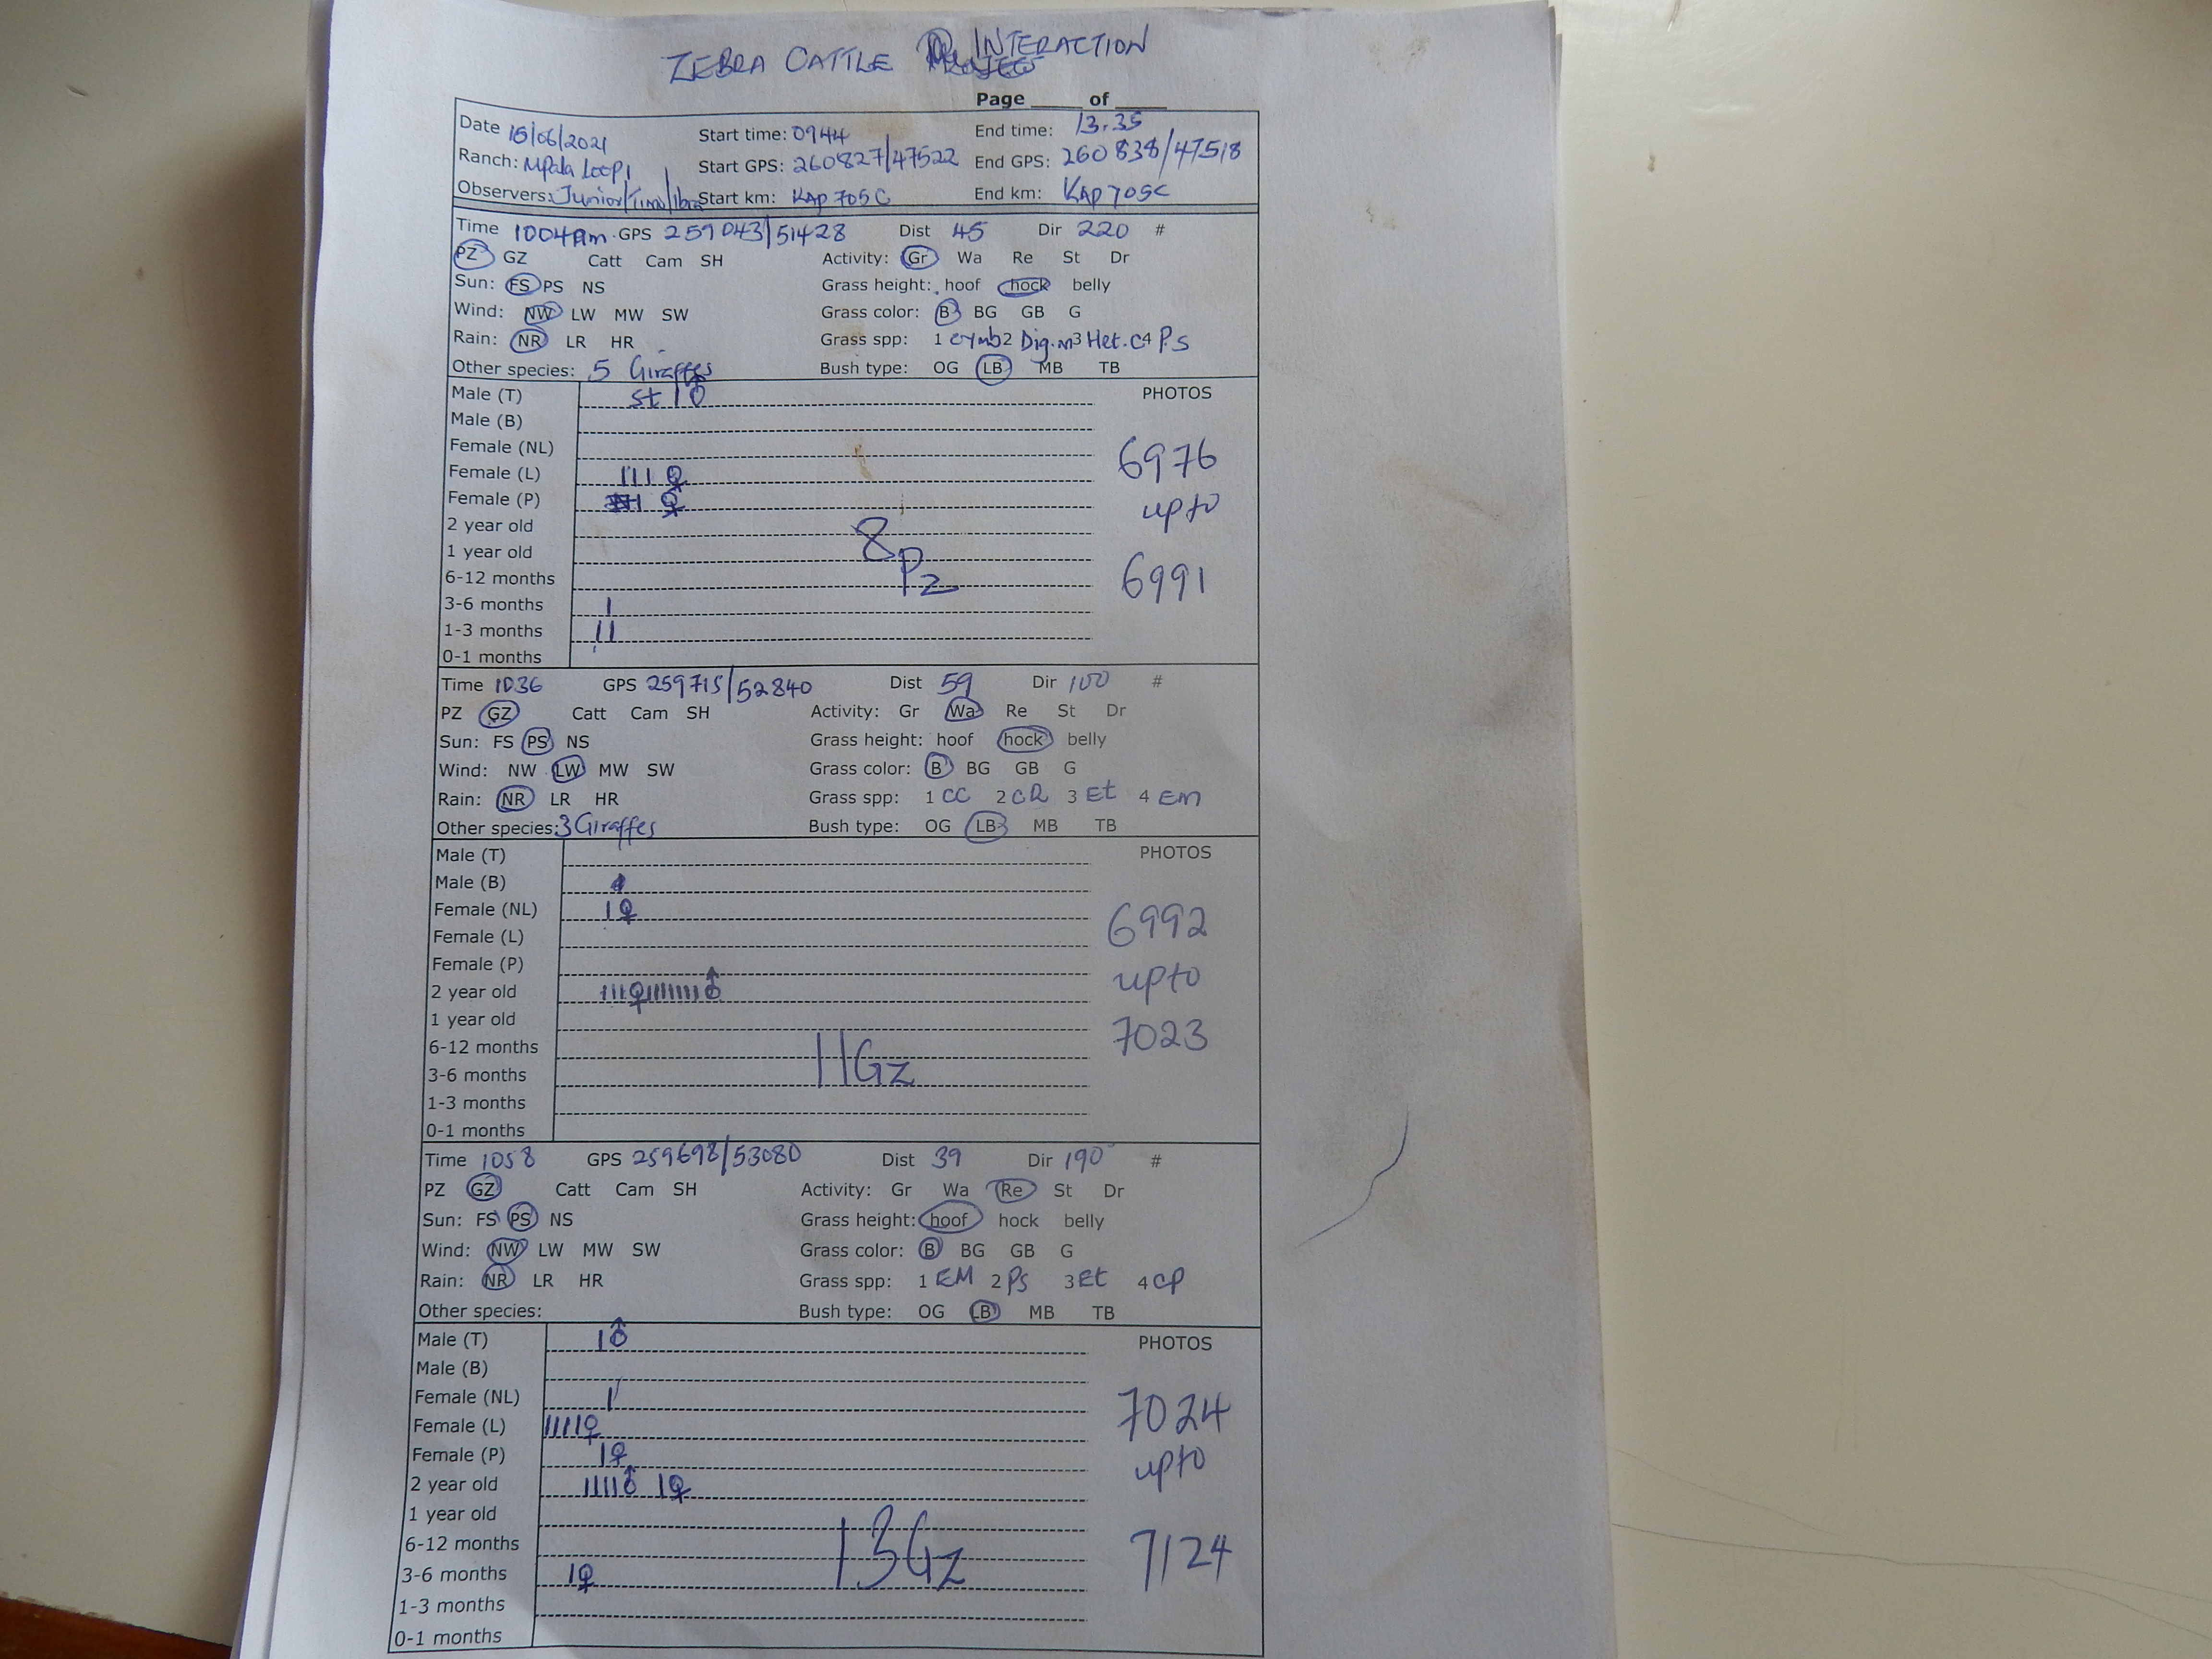 ZEBRA CATTLE INTERACTION
Page ____ of ____
Date 15/06/2021 Start time: 0944 End time: 13.35
Ranch: Mpala Loop 1 Start GPS: 260827/47522 End GPS: 260838/47518
Observers: Junior/Timo/Ibra Start km: KAP 705C End km: KAP 705C
Time 1004am GPS 259043/51428 Dist 45 Dir 220 #
PZ GZ Catt Cam SH Activity: Gr Wa Re St Dr
Sun: FS PS NS Grass height: hoof hock belly
Wind: NW LW MW SW Grass color: B BG GB G
Rain: NR LR HR Grass spp: 1 Cymb 2 Dig.m 3 Het.c 4 P.s
Other species: 5 Giraffes Bush type: OG LB MB TB
Male (T) st 1 ♂ PHOTOS
Male (B)
Female (NL) 6976
Female (L) III ♀
Female (P) I ♀ upto
2 year old 8
1 year old Pz
6-12 months 6991
3-6 months I
1-3 months II
0-1 months
Time 1036 GPS 259715/52840 Dist 59 Dir 100 #
PZ GZ Catt Cam SH Activity: Gr Wa Re St Dr
Sun: FS PS NS Grass height: hoof hock belly
Wind: NW LW MW SW Grass color: B BG GB G
Rain: NR LR HR Grass spp: 1 CC 2 CD 3 Et 4 Em
Other species: 3 Giraffes Bush type: OG LB MB TB
Male (T) PHOTOS
Male (B)
Female (NL) I ♀ 6992
Female (L)
Female (P) upto
2 year old III ♀ IIIIIII ♂
1 year old 7023
6-12 months 11Gz
3-6 months
1-3 months
0-1 months
Time 1058 GPS 259698/53080 Dist 39 Dir 190 #
PZ GZ Catt Cam SH Activity: Gr Wa Re St Dr
Sun: FS PS NS Grass height: hoof hock belly
Wind: NW LW MW SW Grass color: B BG GB G
Rain: NR LR HR Grass spp: 1 EM 2 Ps 3 Et 4 CP
Other species: Bush type: OG LB MB TB
Male (T) I ♂ PHOTOS
Male (B)
Female (NL) I 7024
Female (L) IIIII ♀
Female (P) I ♀ upto
2 year old IIIII ♂ I ♀
1 year old
6-12 months 13Gz 7124
3-6 months I ♀
1-3 months
0-1 months